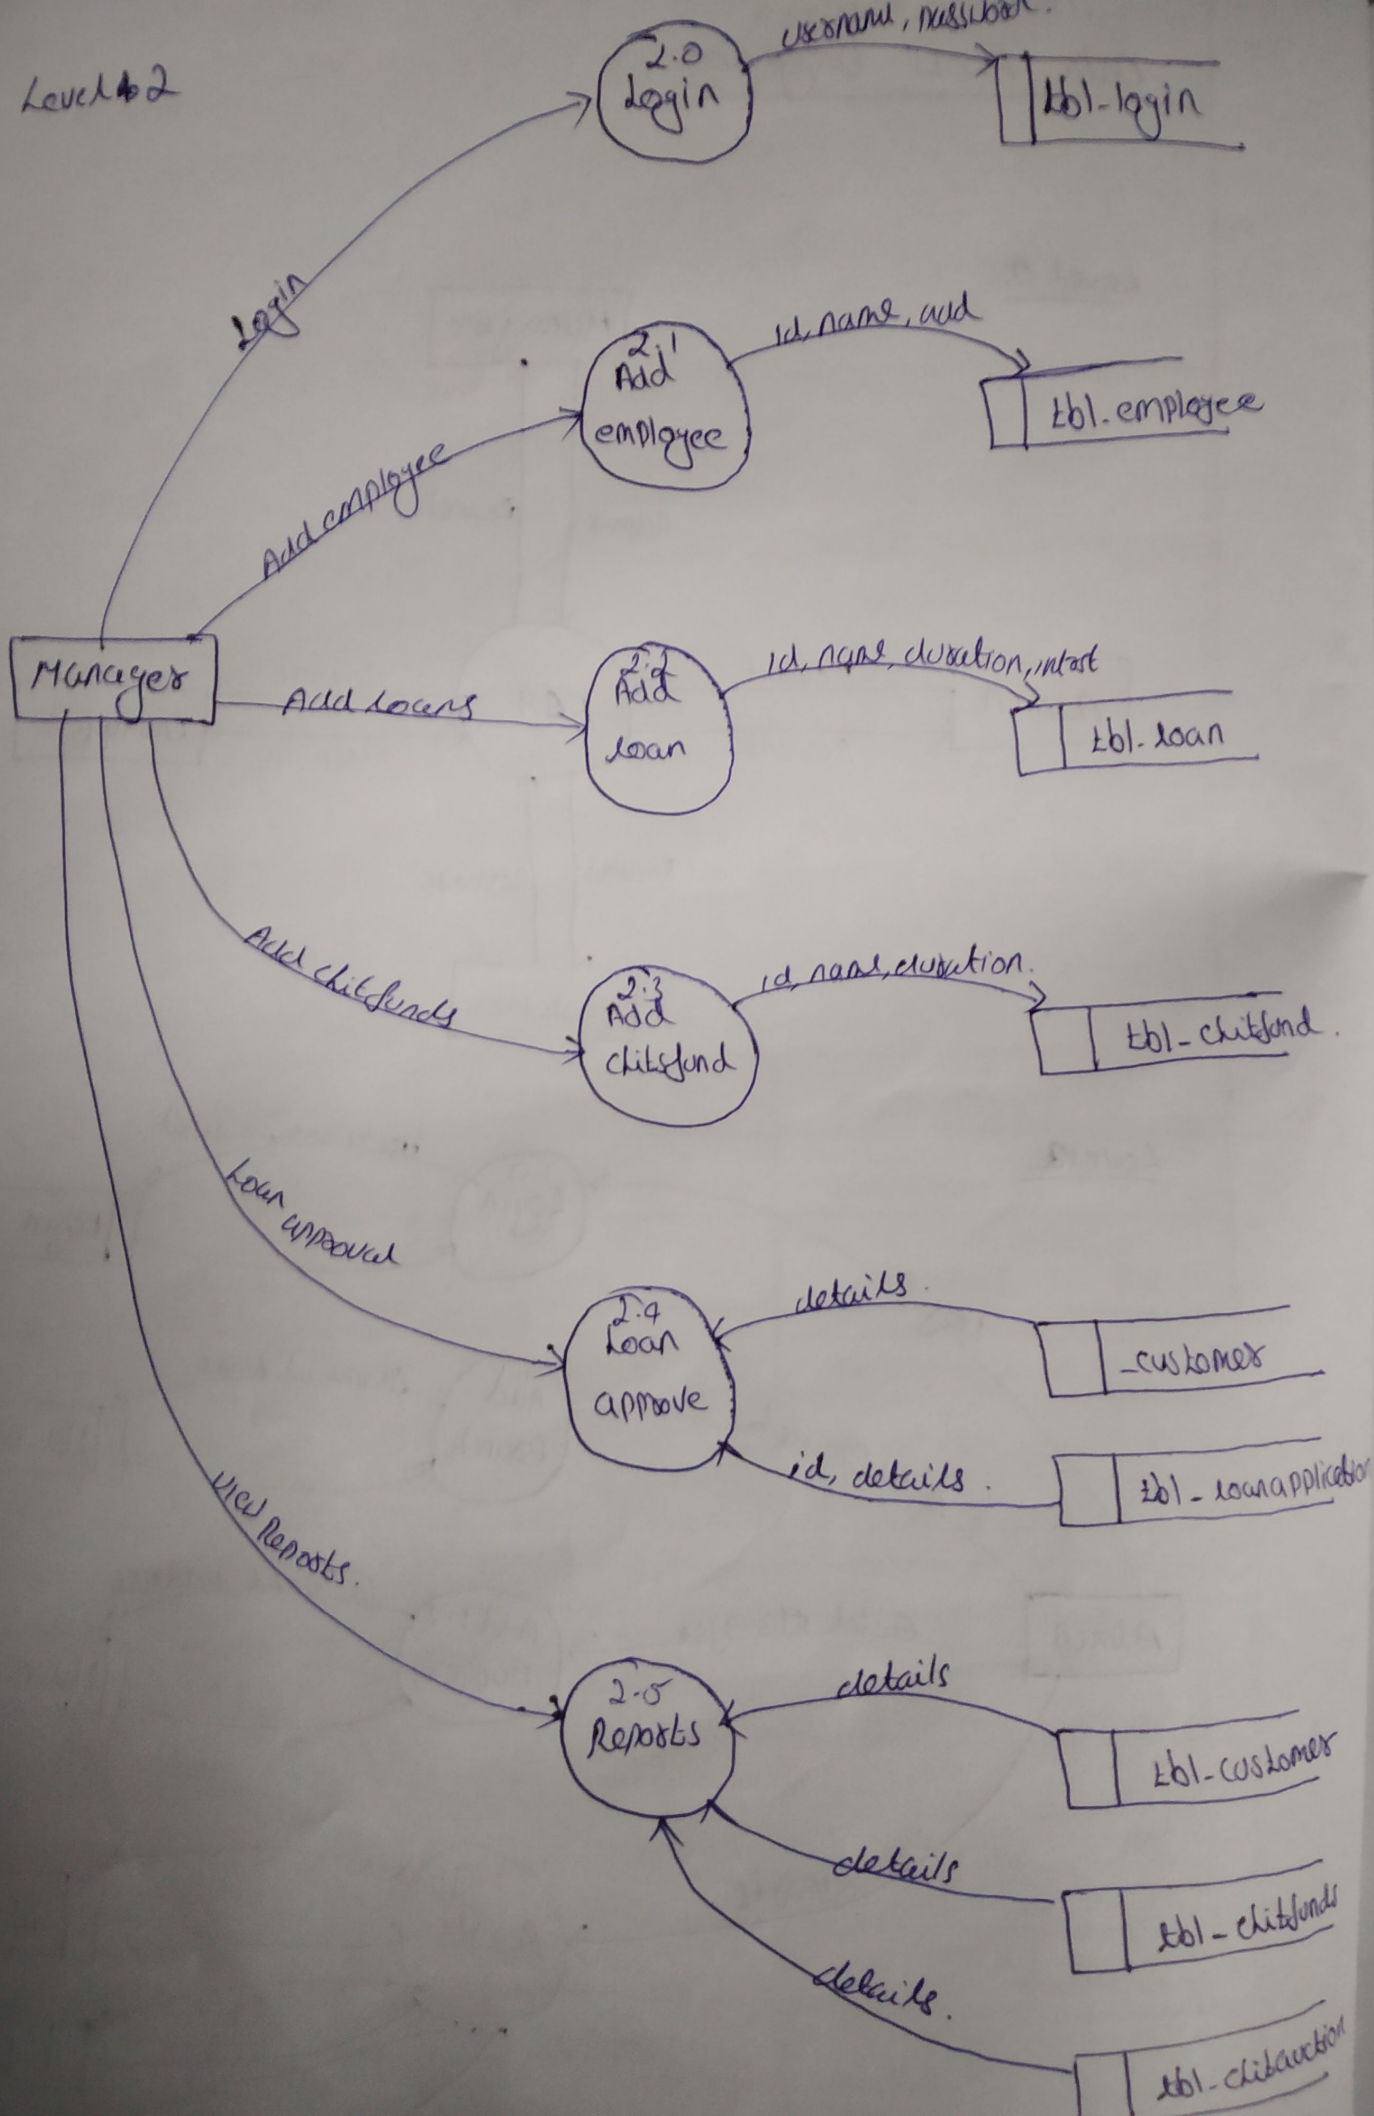 username, password.
2.0
Login
tbl-login
Level 2
Login
2.1
Add
employee
id, name, add
tbl-employee
Add employee
Manager
Add Loans
2.2
Add
loan
id, name, duration, intrst
tbl-loan
Add chitfunds
2.3
Add
chitsfund
id, name, duration.
tbl-chitfund.
Loan
approval
2.4
Loan
approve
details.
-customer
id, details.
tbl-loanapplication
View Reports.
2.5
Reports
details
tbl-customer
details
tbl-chitfunds
details.
tbl-chitauction